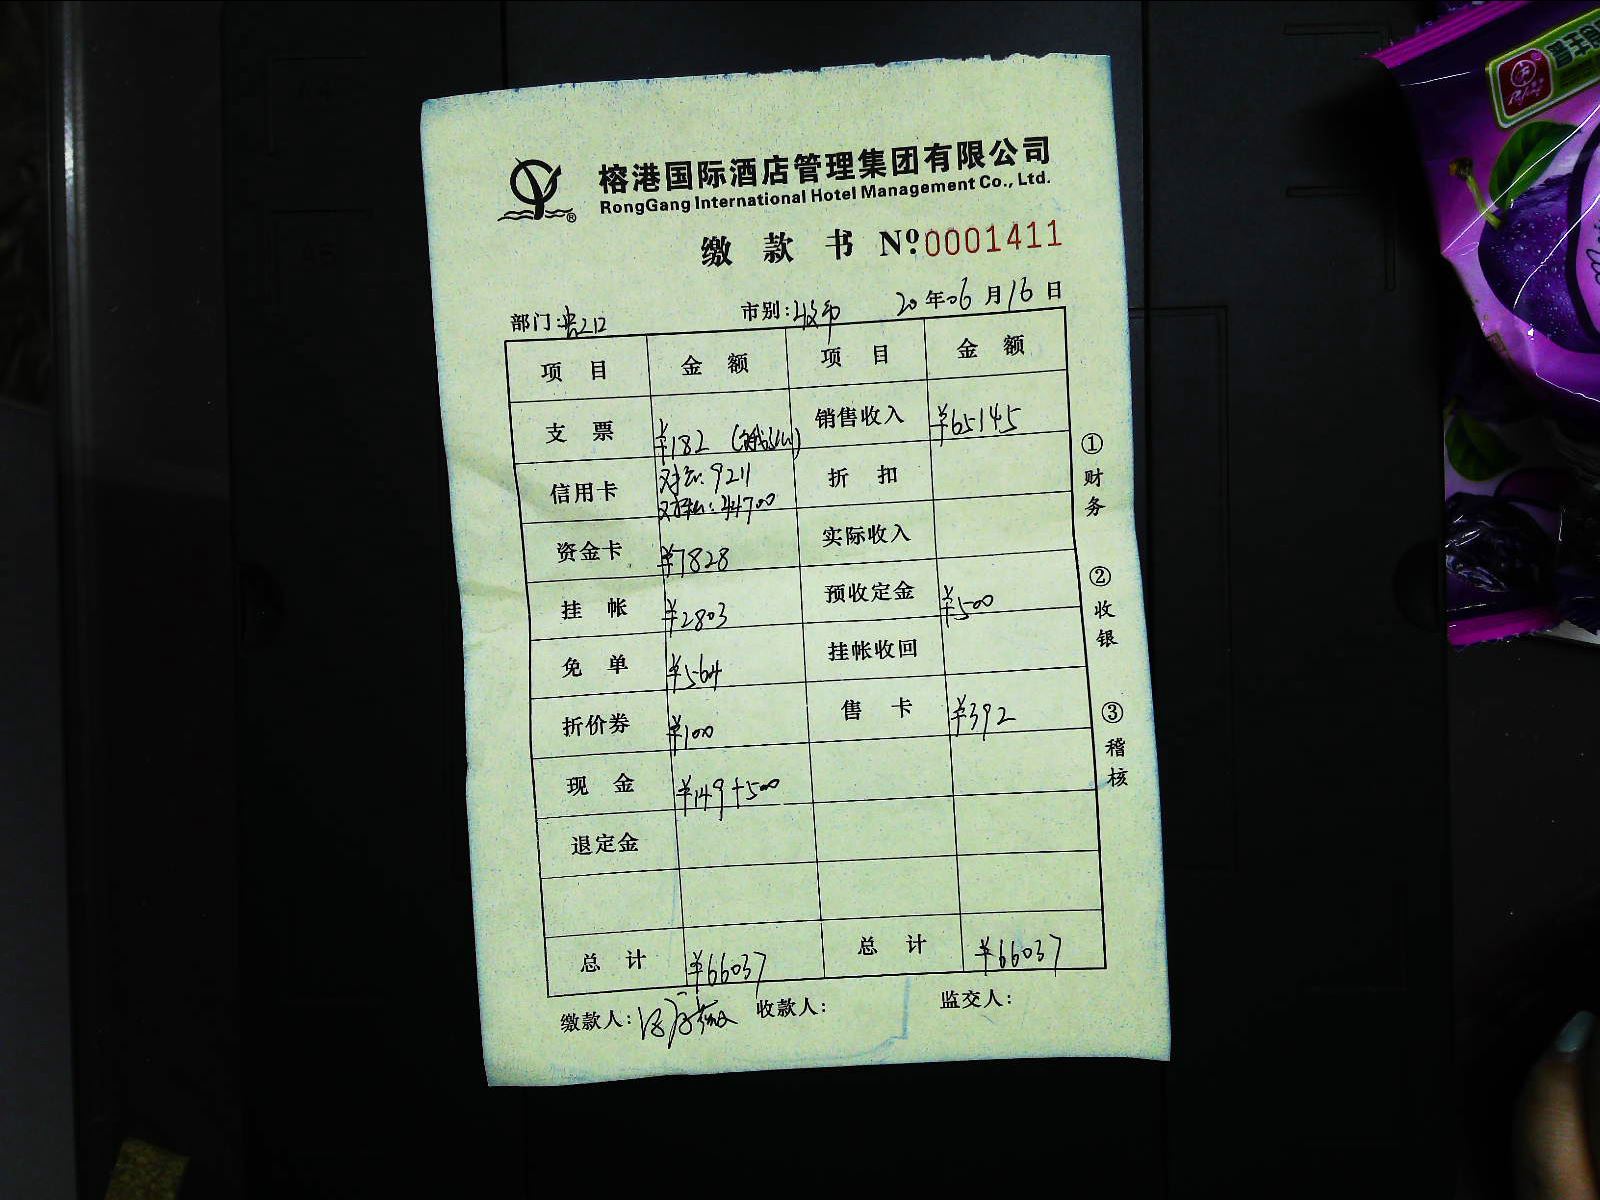 榕港国际酒店管理集团有限公司
RongGang International Hotel Management Co., Ltd.
缴款书 Nº 0001411
部门: 市别: 20年06月16日
项目 金额 项目 金额
支票 ¥182 销售收入 ¥65145
信用卡 9211 44700 折扣
实际收入
资金卡 ¥7828
预收定金 ¥500
挂帐 ¥2803
挂帐收回
免单 ¥564
售卡 ¥392
折价券 ¥100
现金 ¥149+500
退定金
总计 ¥66037 总计 ¥66037
缴款人: 收款人: 监交人:
①财务
②收银
③稽核